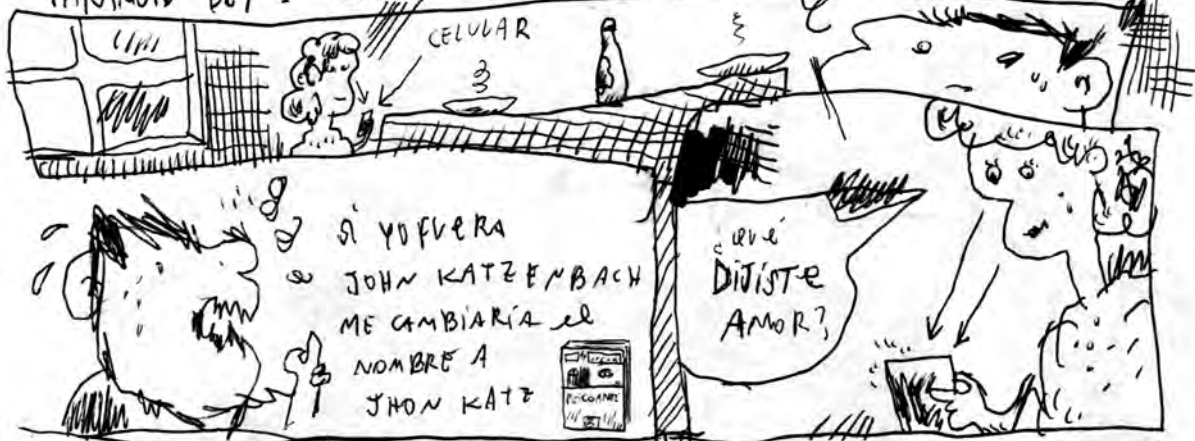 CELULAR
Si YO FUERA
JOHN KATZENBACH
ME CAMBiARíA el
NOMBRE A
JHON KATZ
¿QUé
DiJiSTE
AMOR?